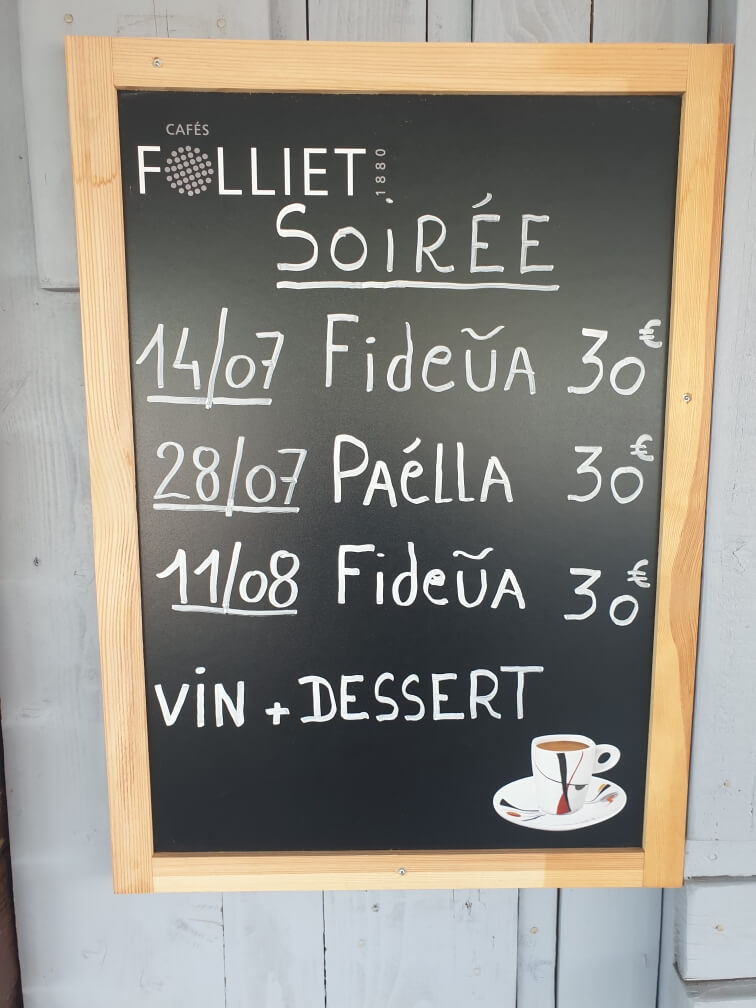 CAFÉS
FOLLIET 1880
SOIRÉE
14/07 Fideŭa 30€
28/07 PAéLLA 30€
11/08 Fideŭa 30€
ViN + DESSERT